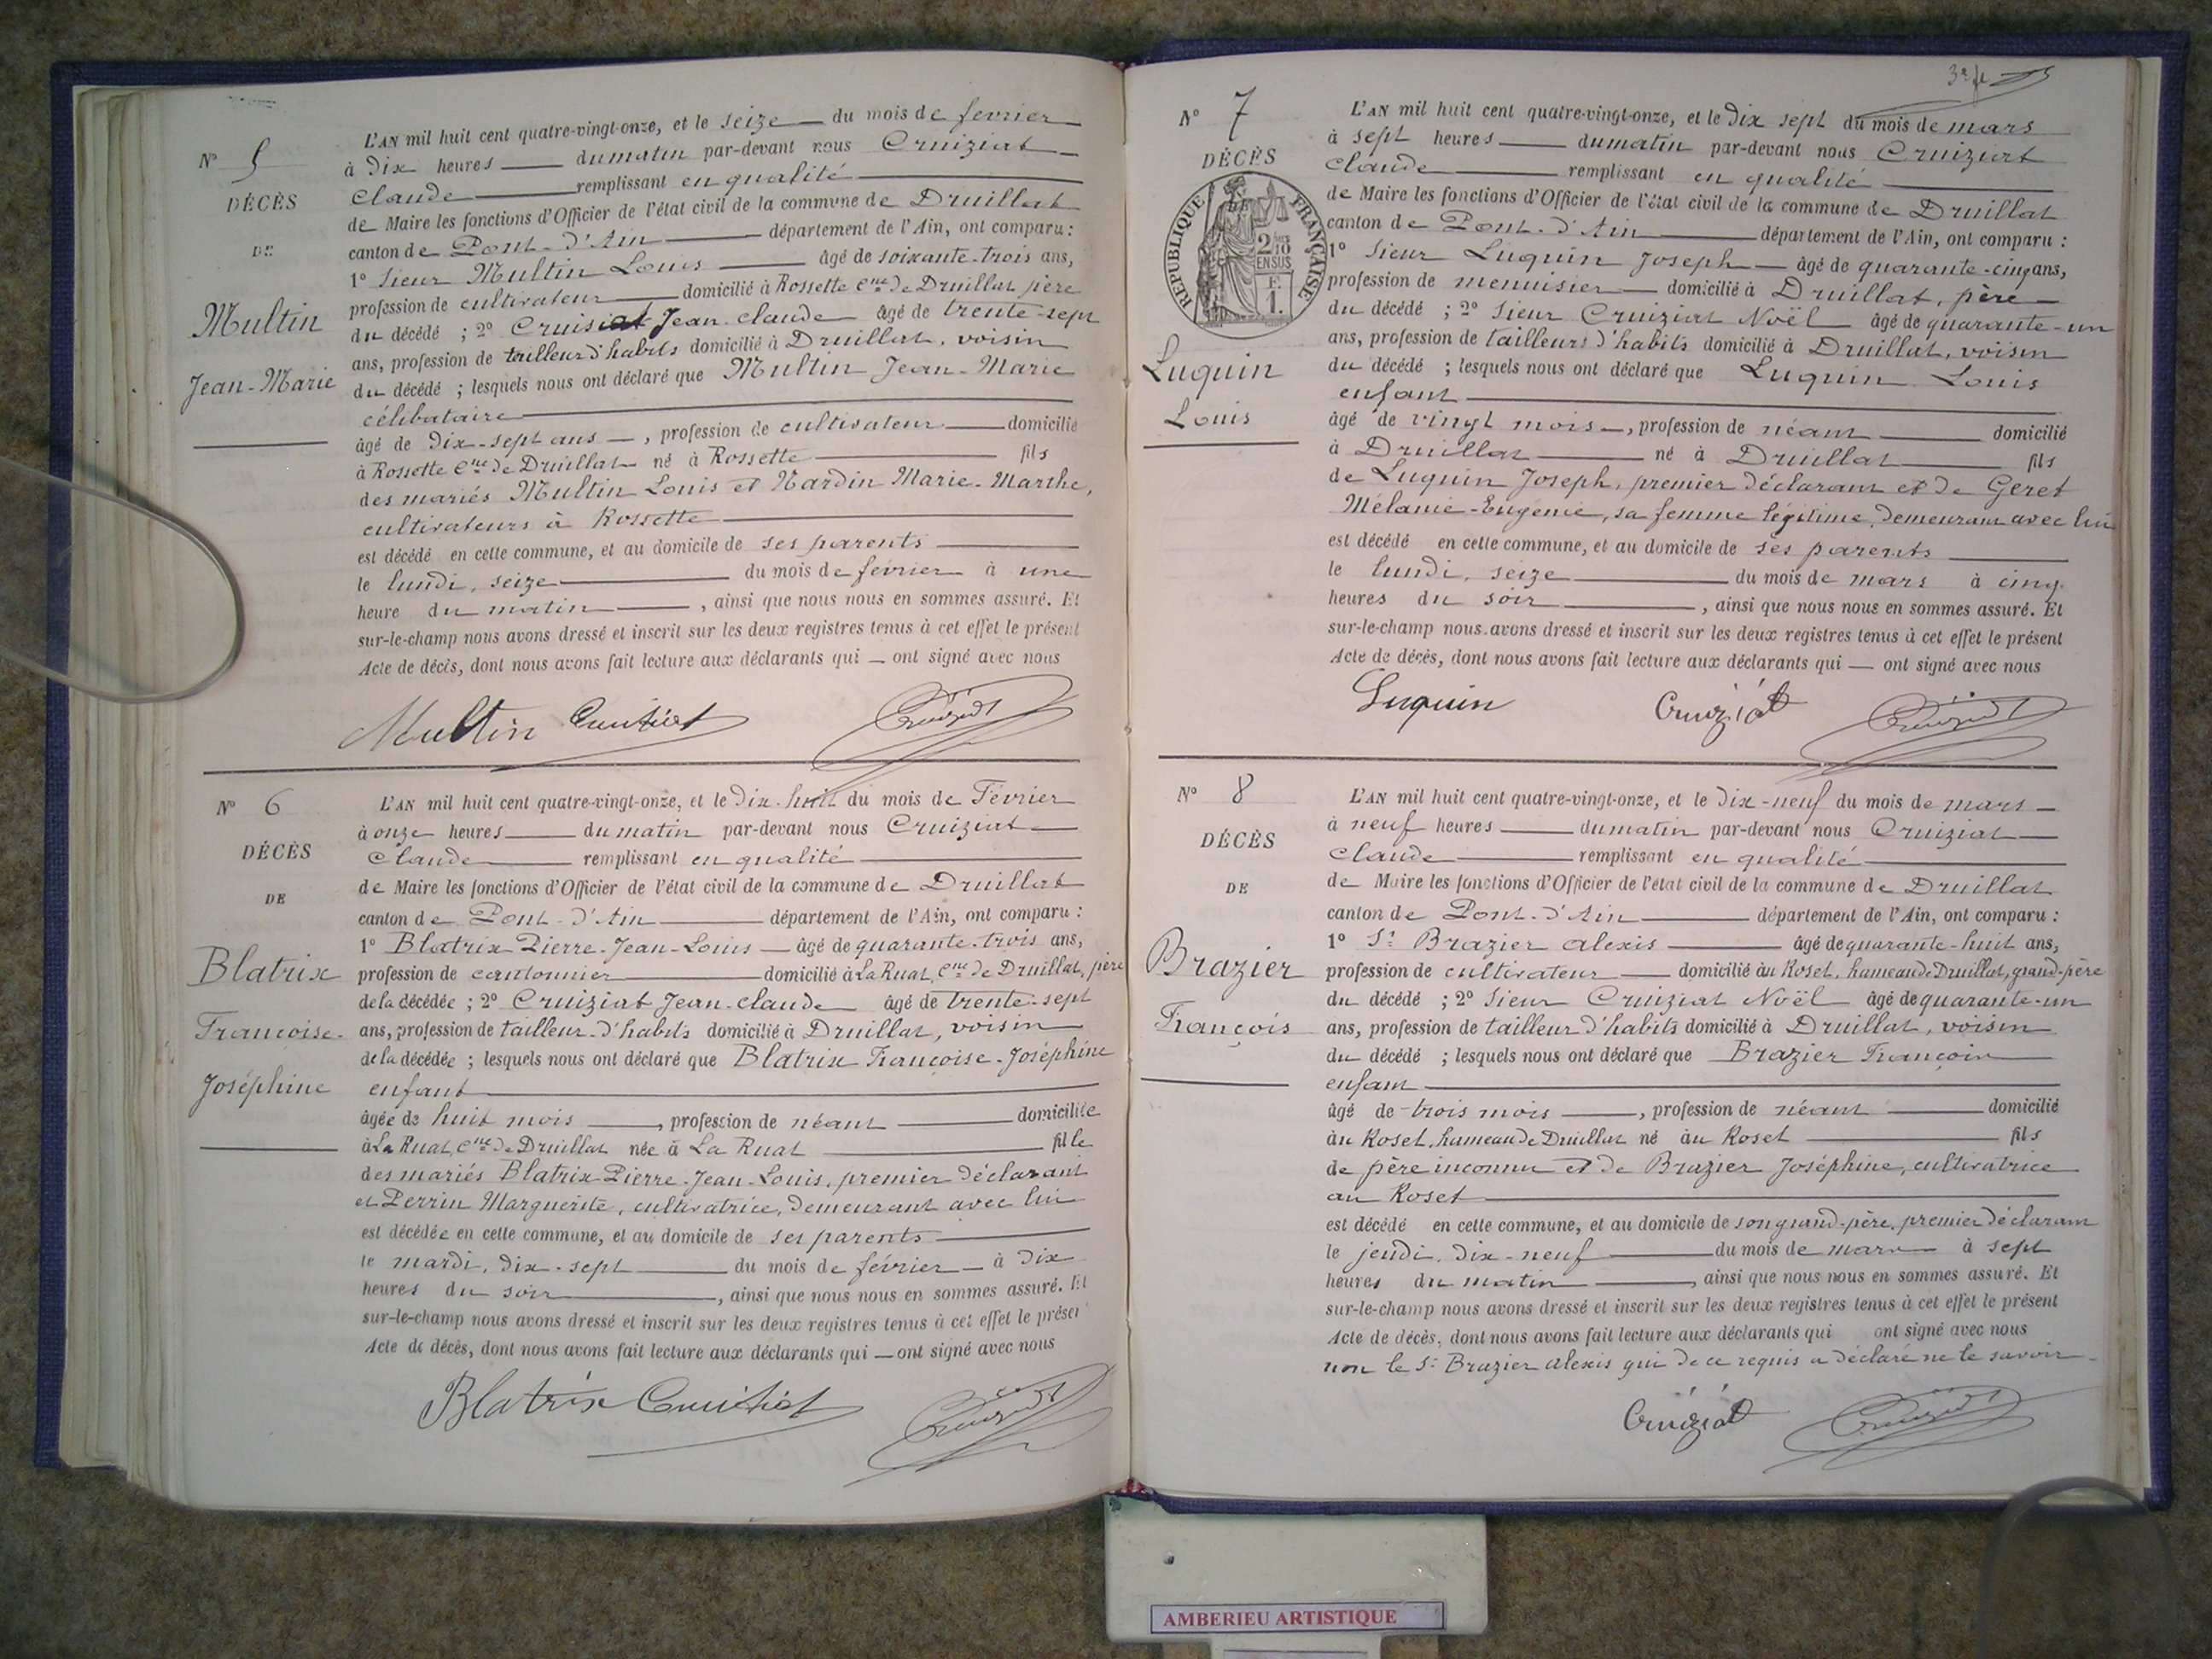 N° 5
DÉCÈS
DE
Multin
Jean-Marie
L'AN mil huit cent quatre-vingt-onze, et le seize du mois de fevrier
à dix heures du matin par-devant nous Cruiziat
Claude remplissant en qualité
de Maire les fonctions d'Officier de l'état civil de la commune de Druillat
canton de Pont-d'Ain département de l'Ain, ont comparu :
1° Sieur Multin Louis âgé de soixante-trois ans,
profession de cultivateur domicilié à Rossette Cne de Druillat père
du décédé ; 2° Cruisiat Jean-Claude âgé de trente-sept
ans, profession de tailleur d'habits domicilié à Druillat, voisin
du décédé ; lesquels nous ont déclaré que Multin Jean-Marie
célibataire
âgé de dix-sept ans, profession de cultivateur domicilié
à Rossette Cne de Druillat né à Rossette fils
des mariés Multin Louis et Nardin Marie-Marthe,
cultivateurs à Rossette
est décédé en cette commune, et au domicile de ses parents
le lundi, seize du mois de fevrier à une
heure du matin, ainsi que nous nous en sommes assuré. Et
sur-le-champ nous avons dressé et inscrit sur les deux registres tenus à cet effet le présent
Acte de décès, dont nous avons fait lecture aux déclarants qui — ont signé avec nous
Multin Cruisiat Cruiziat
N° 6
DÉCÈS
DE
Blatrix
Françoise-
Joséphine
L'AN mil huit cent quatre-vingt-onze, et le dix-huit du mois de Février
à onze heures du matin par-devant nous Cruiziat
Claude remplissant en qualité
de Maire les fonctions d'Officier de l'état civil de la commune de Druillat
canton de Pont-d'Ain département de l'Ain, ont comparu :
1° Blatrix Pierre-Jean-Louis âgé de quarante-trois ans,
profession de cantonnier domicilié à La Ruat, Cne de Druillat, père
de la décédée ; 2° Cruiziat Jean-Claude âgé de trente-sept
ans, profession de tailleur-d'habits domicilié à Druillat, voisin
de la décédée ; lesquels nous ont déclaré que Blatrix Françoise-Joséphine
enfant
âgée de huit mois, profession de néant domicilié
à La Ruat, Cne de Druillat née à La Ruat fille
des mariés Blatrix Pierre-Jean-Louis, premier déclarant
et Perrin Marguerite, cultivatrice, demeurant avec lui
est décédée en cette commune, et au domicile de ses parents
le mardi, dix-sept du mois de février à dix
heures du soir, ainsi que nous nous en sommes assuré. Et
sur-le-champ nous avons dressé et inscrit sur les deux registres tenus à cet effet le présen
Acte de décès, dont nous avons fait lecture aux déclarants qui — ont signé avec nous
Blatrix Cruisiat Cruiziat
3e f
N° 7
DÉCÈS
RÉPUBLIQUE FRANÇAISE
2/10 EN SUS
F. 1.
Luquin
Louis
L'AN mil huit cent quatre-vingt-onze, et le dix sept du mois de mars
à sept heures du matin par-devant nous Cruiziat
Claude remplissant en qualité
de Maire les fonctions d'Officier de l'état civil de la commune de Druillat
canton de Pont-d'Ain département de l'Ain, ont comparu :
1° Sieur Luquin Joseph âgé de quarante-cinq ans,
profession de menuisier domicilié à Druillat, père
du décédé ; 2° Sieur Cruiziat Noël âgé de quarante-un
ans, profession de tailleurs d'habits domicilié à Druillat, voisin
du décédé ; lesquels nous ont déclaré que Luquin Louis
enfant
âgé de vingt mois, profession de néant domicilié
à Druillat né à Druillat fils
de Luquin Joseph, premier déclarant et de Geret
Mélanie-Eugénie, sa femme légitime, demeurant avec lui
est décédé en cette commune, et au domicile de ses parents
le lundi, seize du mois de mars à cinq
heures du soir, ainsi que nous nous en sommes assuré. Et
sur-le-champ nous avons dressé et inscrit sur les deux registres tenus à cet effet le présent
Acte de décès, dont nous avons fait lecture aux déclarants qui — ont signé avec nous
Luquin Cruiziat Cruiziat
N° 8
DÉCÈS
DE
Brazier
François
L'AN mil huit cent quatre-vingt-onze, et le dix-neuf du mois de mars
à neuf heures du matin par-devant nous Cruiziat
Claude remplissant en qualité
de Maire les fonctions d'Officier de l'état civil de la commune de Druillat
canton de Pont-d'Ain département de l'Ain, ont comparu :
1° Sr Brazier Alexis âgé de quarante-huit ans,
profession de cultivateur domicilié au Roset, hameau de Druillat, grand-père
du décédé ; 2° Sieur Cruiziat Noël âgé de quarante-un
ans, profession de tailleur d'habits domicilié à Druillat, voisin
du décédé ; lesquels nous ont déclaré que Brazier François
enfant
âgé de trois mois, profession de néant domicilié
àu Roset, hameau de Druillat né àu Roset fils
de père inconnu et de Brazier Joséphine, cultivatrice
au Roset
est décédé en cette commune, et au domicile de son grand-père, premier déclarant
le jeudi, dix-neuf du mois de mars à sept
heures du matin, ainsi que nous nous en sommes assuré. Et
sur-le-champ nous avons dressé et inscrit sur les deux registres tenus à cet effet le présent
Acte de décès, dont nous avons fait lecture aux déclarants qui ont signé avec nous
non le Sr Brazier Alexis qui de ce requis a déclaré ne le savoir
Cruiziat Cruiziat
AMBERIEU ARTISTIQUE